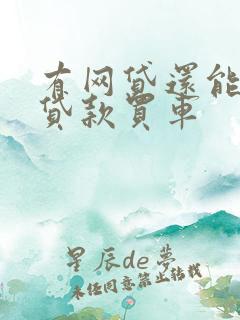 有网贷還能
贷款買車
星辰de夢
未经同意禁止转载